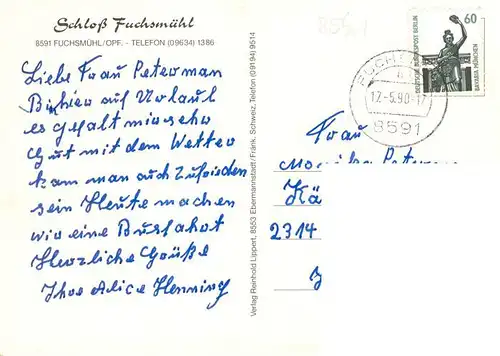 Schloß Fuchsmühl
8591 FUCHSMÜHL/OPF. - TELEFON (09634) 1386
Liebe Frau Peterman
Bin hier auf Urlaub
es gefält mir sehr
Gut mit dem Wetter
kan man auch Zufrieden
sein Heute machen
wir eine Busfahrt
Herzliche Grüße
Ihre Alice Henning
Verlag Reinhold Lippert, 8553 Ebermannstadt/Fränk. Schweiz, Telefon (09194) 9514
60
DEUTSCHE BUNDESPOST BERLIN
BAVARIA MÜNCHEN
12.-5.90.-17
8591
Frau
Peterm
Kä
2314